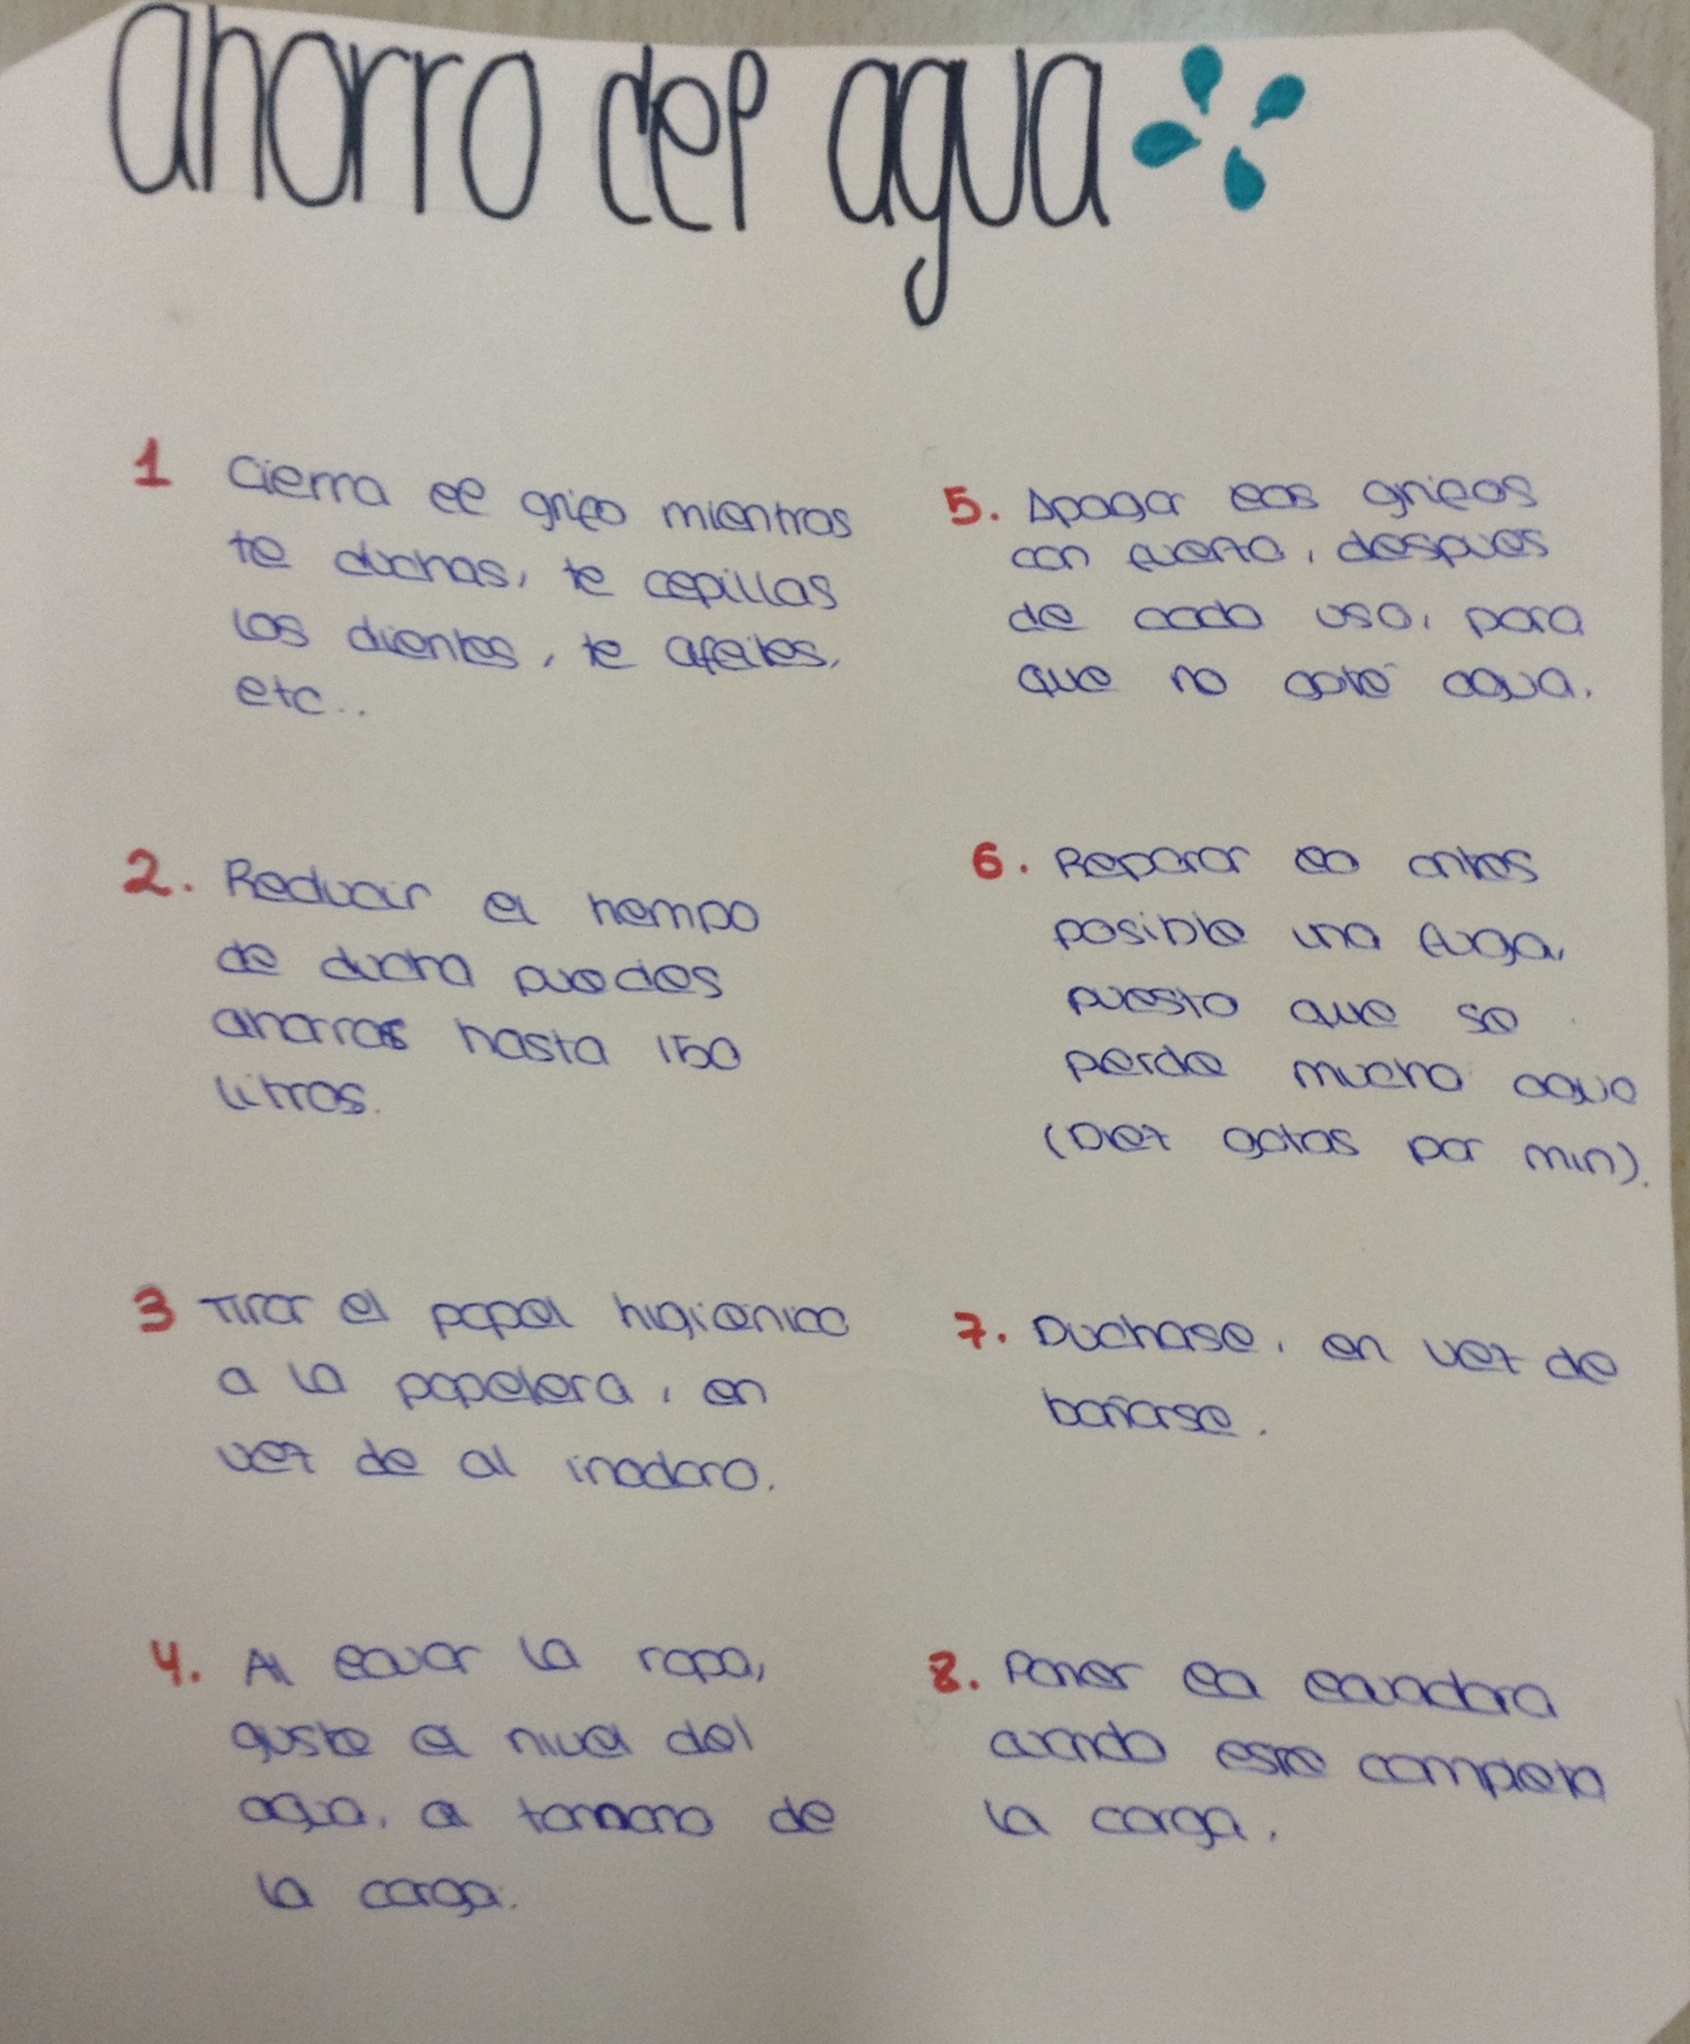 ahorro del agua
1 Cierra el grifo mientras
te duchas, te cepillas
los dientes, te afeites,
etc...
2. Reducir el tiempo
de ducha puedes
ahorrar hasta 150
litros.
3 Tirar el papel higienico
a la papelera, en
vez de al inodoro.
4. Al lavar la ropa,
guste el nivel del
agua, al tamano de
la carga.
5. Apagar los grifos
con fuerza, despues
de cada uso, para
que no gote agua.
6. Reparar lo antes
posible una fuga,
puesto que se
perde mucho agua
(Diez gotas por min).
7. Duchase, en vez de
bañarse.
8. Poner la lavadora
cuando este completa
la carga.